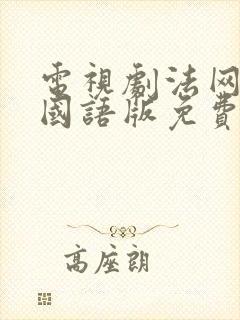 電視劇法网
國語版免費
高座朗